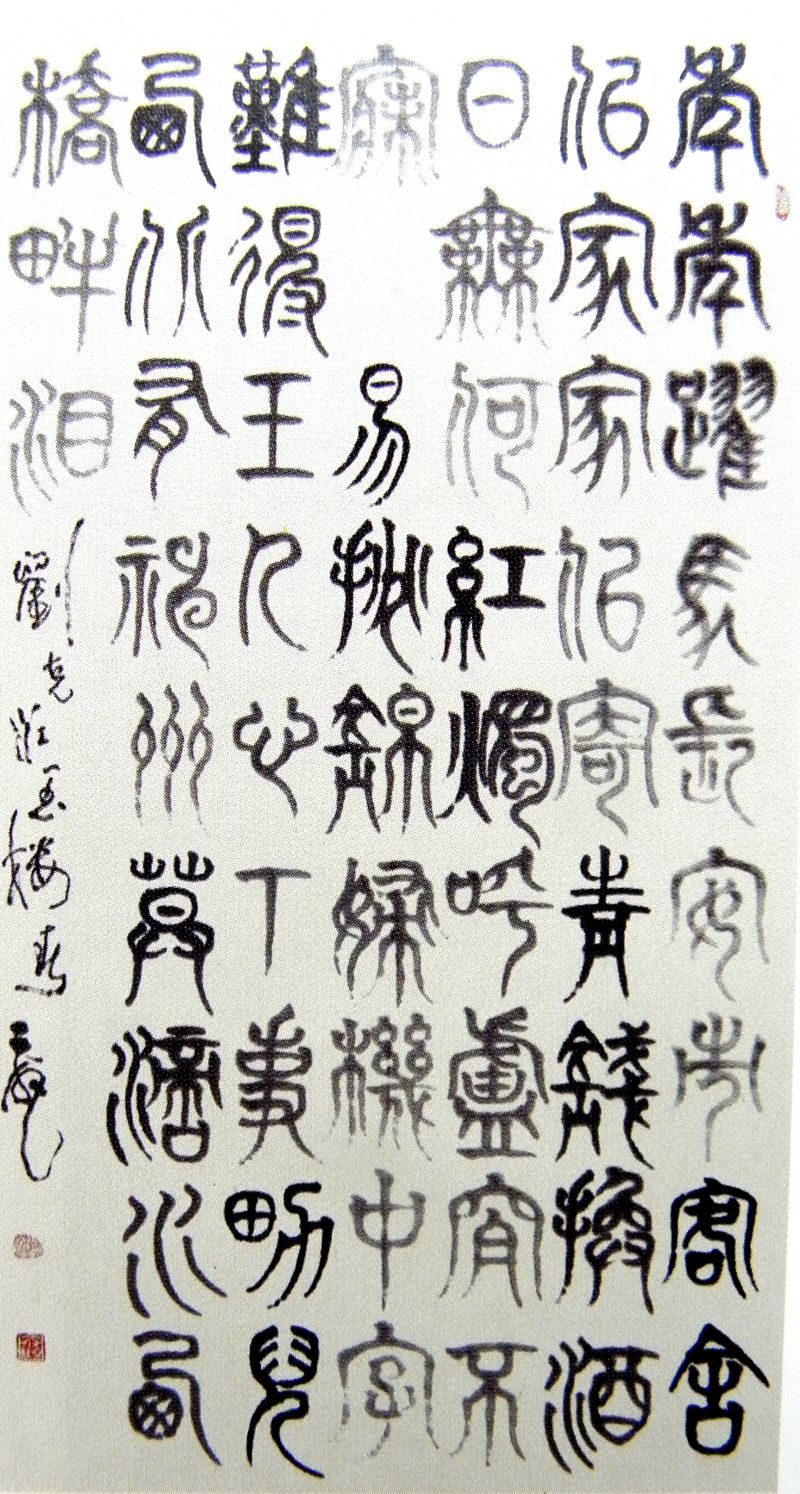 年年躍馬長安市客舍
似家家似寄青錢換酒
日無何紅燭呼盧宵不
寐 易挑錦婦機中字
難得玉人心下事男兒
西北有神州莫滴水西
橋畔泪
劉克莊玉樓春